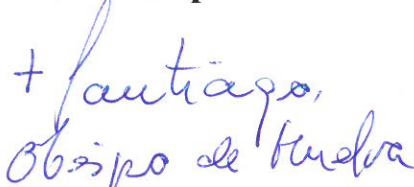 + Santiago,
Obispo de Huelva